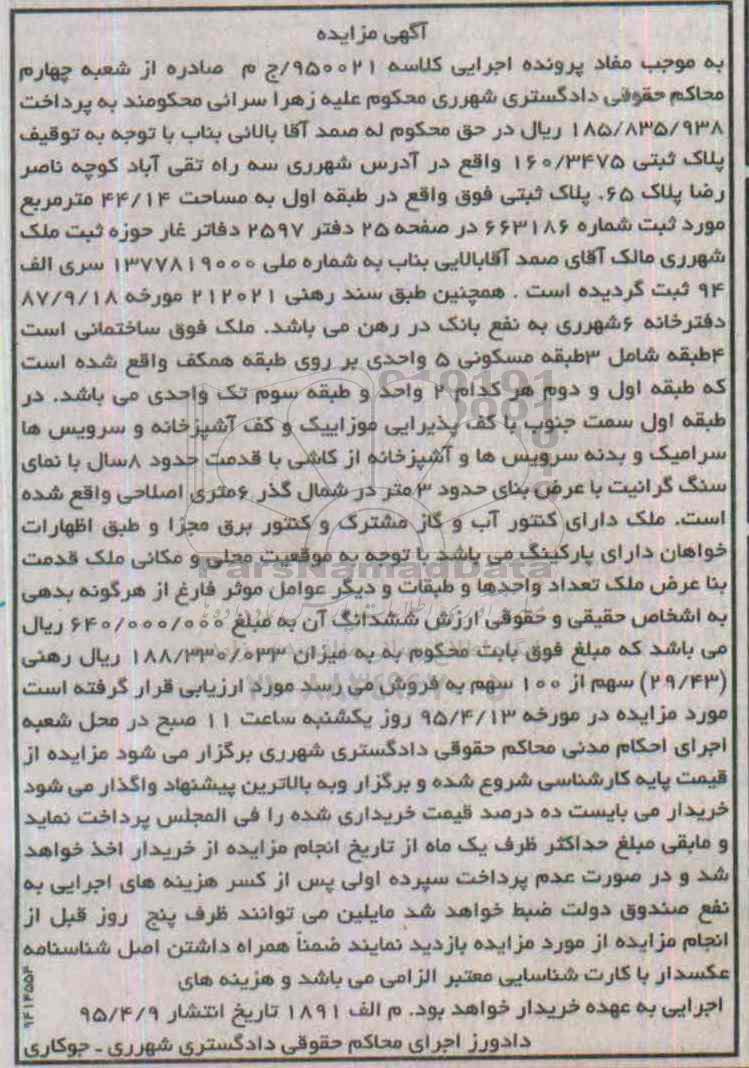 آگهی مزایده
به موجب مفاد پرونده اجرایی کلاسه ۹۵۰۰۲۱/ج م صادره از شعبه چهارم
محاکم حقوقی دادگستری شهرری محکوم علیه زهرا سرائی محکومند به پرداخت
۱۸۵/۸۳۵/۹۳۸ ریال در حق محکوم له صمد آقا بالائی بناب با توجه به توقیف
پلاک ثبتی ۱۶۰/۳۴۷۵ واقع در آدرس شهرری سه راه تقی آباد کوچه ناصر
رضا پلاک ۶۵. پلاک ثبتی فوق واقع در طبقه اول به مساحت ۴۴/۱۴ مترمربع
مورد ثبت شماره ۶۶۳۱۸۶ در صفحه ۲۵ دفتر ۲۵۹۷ دفاتر غار حوزه ثبت ملک
شهرری مالک آقای صمد آقابالایی بناب به شماره ملی ۱۳۷۷۸۱۹۰۰۰ سری الف
۹۴ ثبت گردیده است . همچنین طبق سند رهنی ۲۱۲۰۲۱ مورخه ۸۷/۹/۱۸
دفترخانه ۶شهرری به نفع بانک در رهن می باشد. ملک فوق ساختمانی است
۴طبقه شامل ۳طبقه مسکونی ۵ واحدی بر روی طبقه همکف واقع شده است
که طبقه اول و دوم هر کدام ۲ واحد و طبقه سوم تک واحدی می باشد. در
طبقه اول سمت جنوب با کف پذیرایی موزاییک و کف آشپزخانه و سرویس ها
سرامیک و بدنه سرویس ها و آشپزخانه از کاشی با قدمت حدود ۸سال با نمای
سنگ گرانیت با عرض بنای حدود ۳ متر در شمال گذر ۶متری اصلاحی واقع شده
است. ملک دارای کنتور آب و گاز مشترک و کنتور برق مجزا و طبق اظهارات
خواهان دارای پارکینگ می باشد با توجه به موقعیت محلی و مکانی ملک قدمت
بنا عرض ملک تعداد واحدها و طبقات و دیگر عوامل موثر فارغ از هرگونه بدهی
به اشخاص حقیقی و حقوقی ارزش ششدانگ آن به مبلغ ۶۴۰/۰۰۰/۰۰۰ ریال
می باشد که مبلغ فوق بابت محکوم به به میزان ۱۸۸/۳۳۰/۰۳۳ ریال رهنی
(۲۹/۴۳) سهم از ۱۰۰ سهم به فروش می رسد مورد ارزیابی قرار گرفته است
مورد مزایده در مورخه ۹۵/۴/۱۳ روز یکشنبه ساعت ۱۱ صبح در محل شعبه
اجرای احکام مدنی محاکم حقوقی دادگستری شهرری برگزار می شود مزایده از
قیمت پایه کارشناسی شروع شده و برگزار وبه بالاترین پیشنهاد واگذار می شود
خریدار می بایست ده درصد قیمت خریداری شده را فی المجلس پرداخت نماید
و مابقی مبلغ حداکثر ظرف یک ماه از تاریخ انجام مزایده از خریدار اخذ خواهد
شد و در صورت عدم پرداخت سپرده اولی پس از کسر هزینه های اجرایی به
نفع صندوق دولت ضبط خواهد شد مایلین می توانند ظرف پنج روز قبل از
انجام مزایده از مورد مزایده بازدید نمایند ضمناً همراه داشتن اصل شناسنامه
عکسدار با کارت شناسایی معتبر الزامی می باشد و هزینه های
اجرایی به عهده خریدار خواهد بود. م الف ۱۸۹۱ تاریخ انتشار ۹۵/۴/۹
دادورز اجرای محاکم حقوقی دادگستری شهرری ـ جوکاری
۹۴۱۴۵۵۴
ParsNamadData